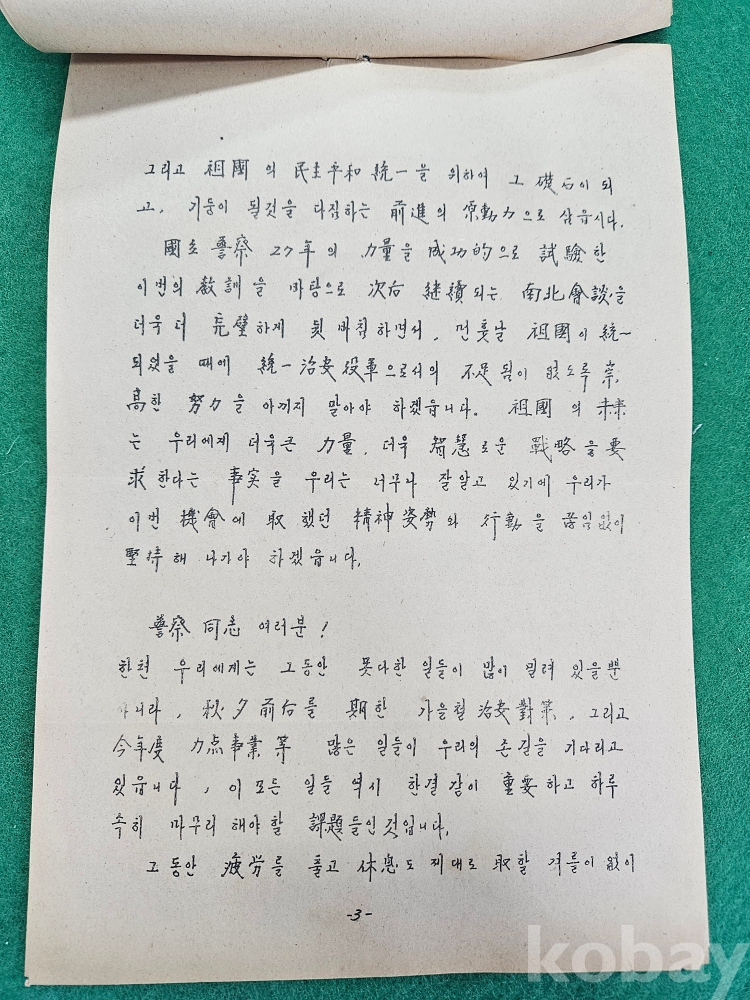 그리고 祖國의 民主平和統一을 위하여 그 礎石이 되
고, 기둥이 될것을 다짐하는 前進의 原動力으로 삼읍시다.
國立警察 27年의 力量을 成功的으로 試驗한
이번의 敎訓을 바탕으로 次后 継續되는 南北會談을
더욱 더 完璧하게 뒷바침하면서, 먼훗날 祖國이 統一
되었을 때에 統一治安役軍으로서의 不足됨이 없도록 崇
高한 努力을 아끼지 말아야 하겠읍니다. 祖國의 未來
는 우리에게 더욱큰 力量, 더욱 智慧로운 戰略을 要
求한다는 事実을 우리는 너무나 잘알고 있기에 우리가
이번 機會에 取했던 精神姿勢와 行動을 끊임없이
堅持해 나가야 하겠읍니다.
警察同志 여러분!
한편 우리에게는 그동안 못다한 일들이 많이 밀려 있을뿐
아니라, 秋夕前后를 期한 가을철 治安對策, 그리고
今年度 力点事業等 많은 일들이 우리의 손길을 기다리고
있읍니다, 이 모든 일들 역시 한결같이 重要하고 하루
속히 마무리 해야할 課題들인것입니다.
그동안 疲労를 풀고 休息도 제대로 取할 겨를이 없이
-3-
kobay